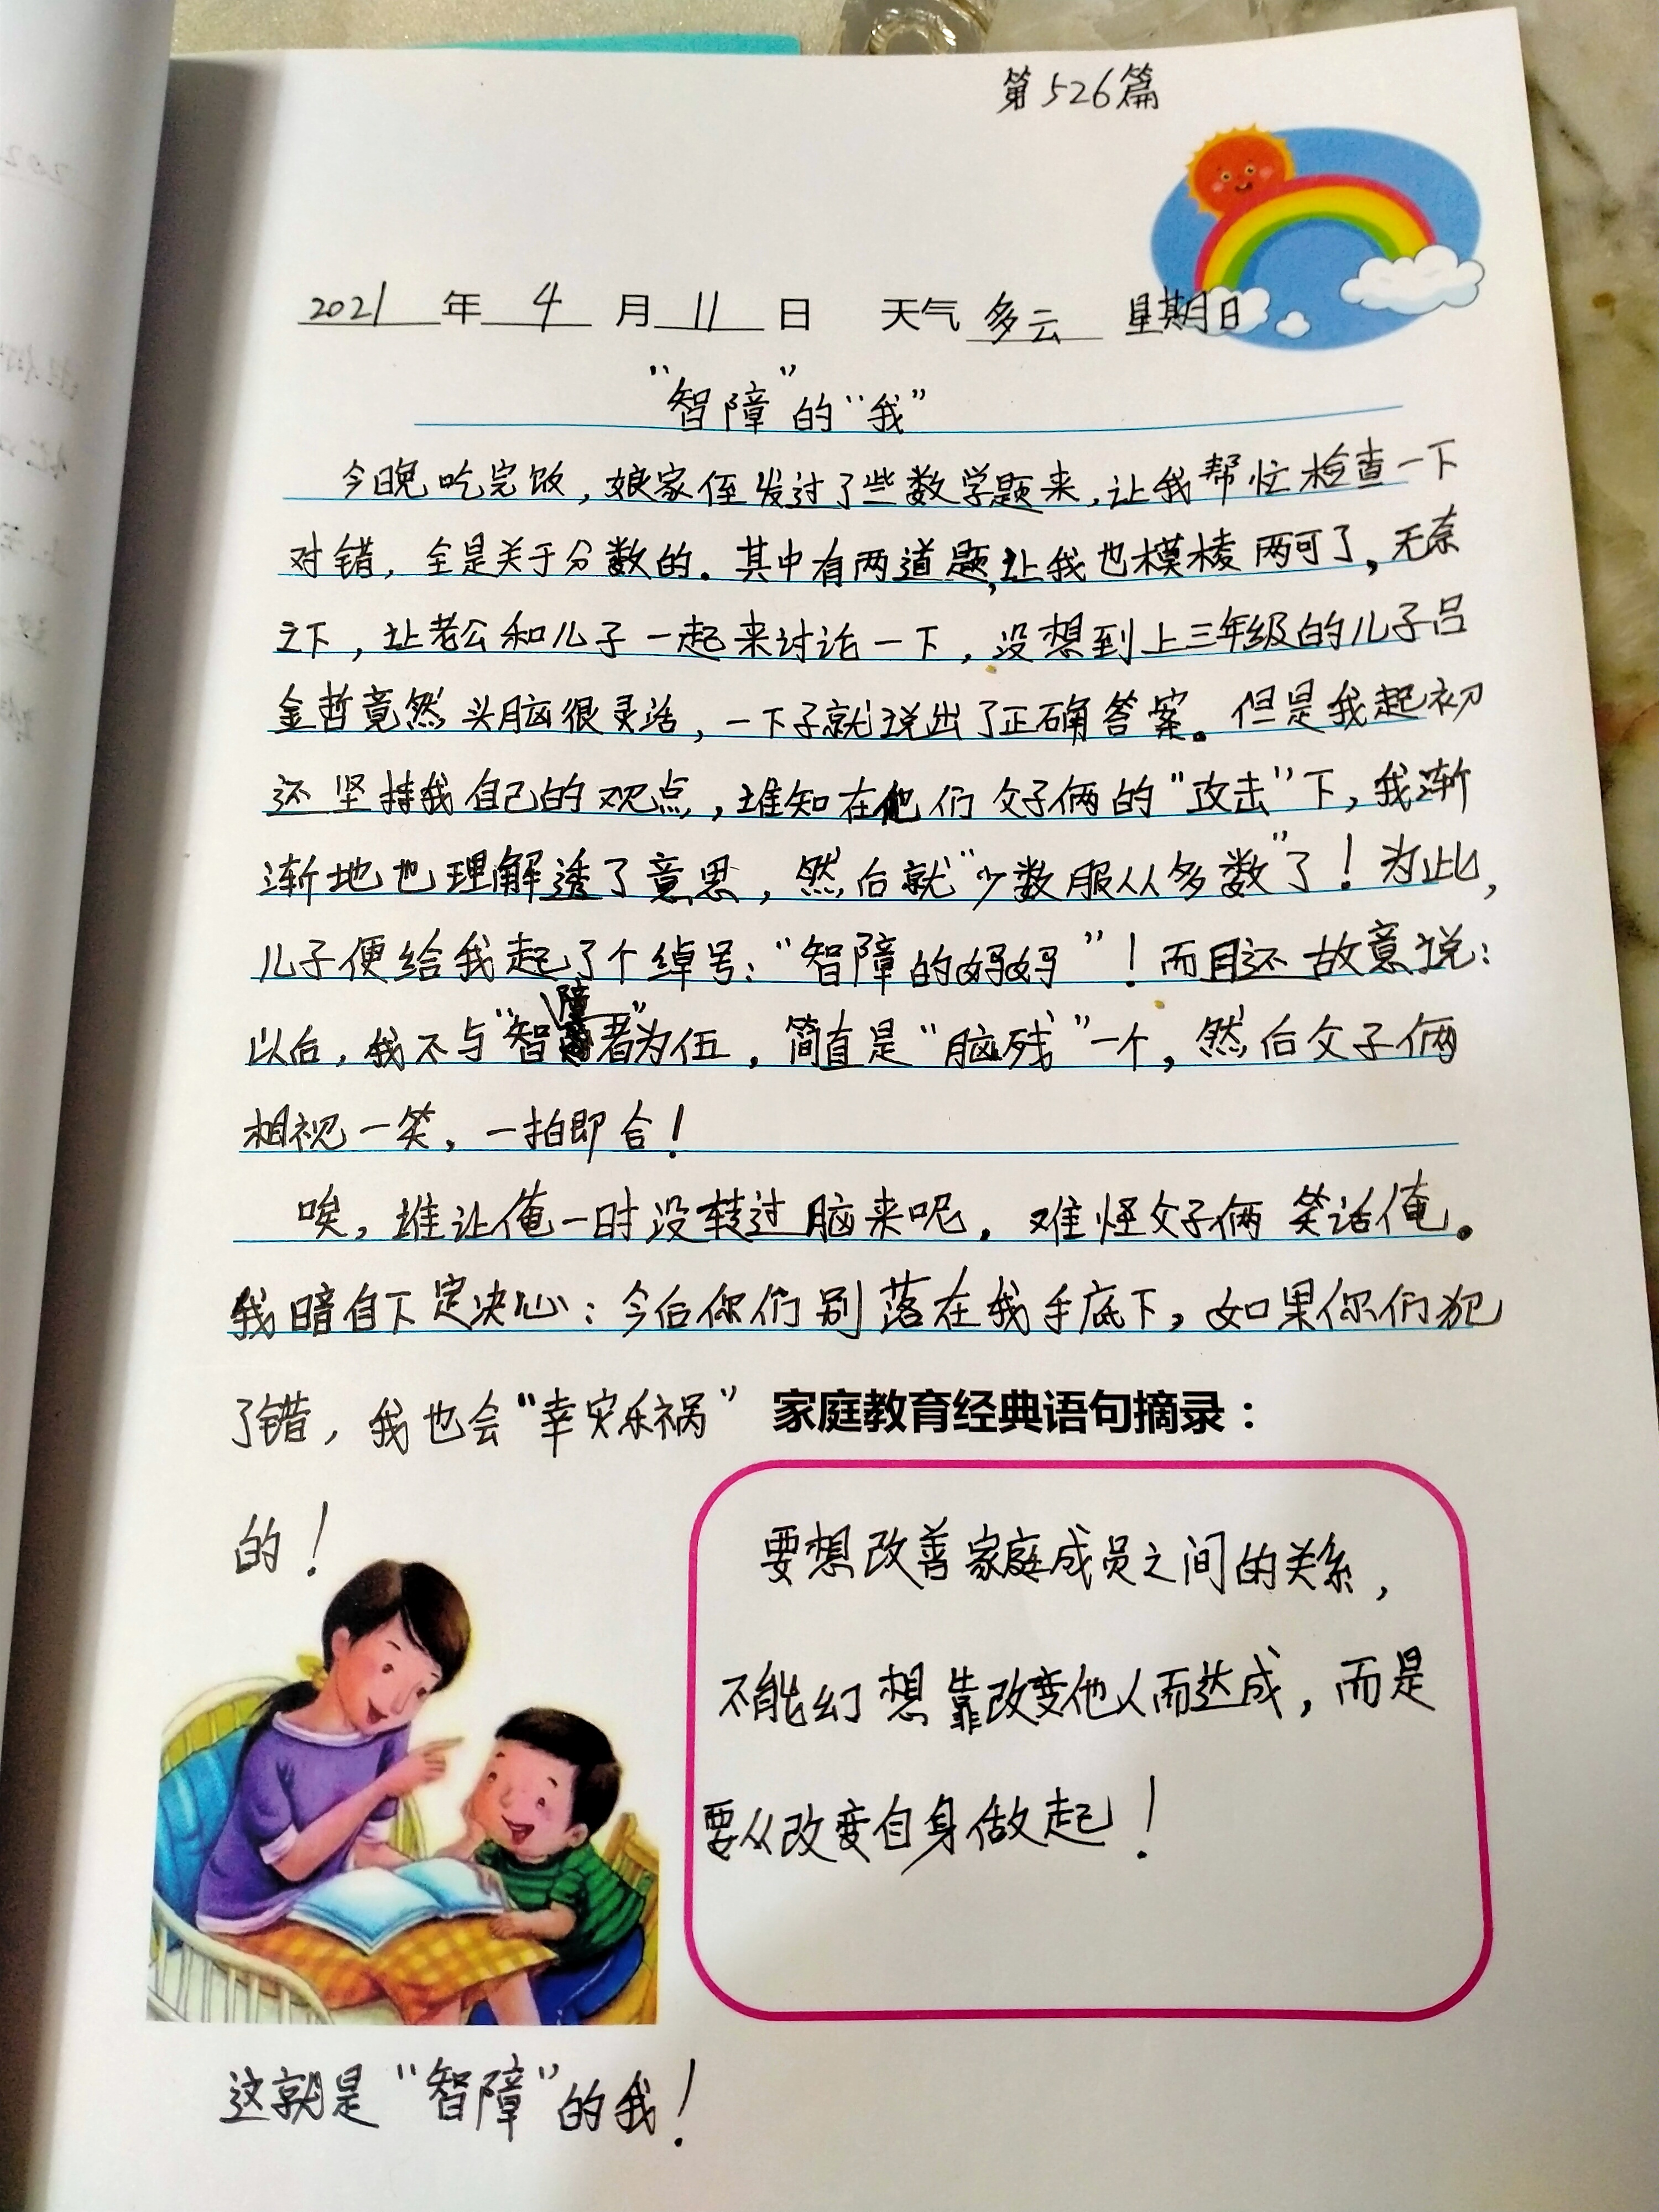 第526篇
2021年4月11日 天气多云 星期日
“智障”的“我”
今晚吃完饭，娘家侄发过了些数学题来，让我帮忙检查一下
对错，全是关于分数的。其中有两道题，让我也模棱两可了，无奈
之下，让老公和儿子一起来讨论一下，没想到上三年级的儿子吕
金哲竟然头脑很灵活，一下子就说出了正确答案。但是我起初
还坚持我自己的观点，谁知在他们父子俩的“攻击”下，我渐
渐地也理解透了意思，然后就“少数服从多数”了！为此，
儿子便给我起了个绰号：“智障的妈妈”！而且还故意说：
以后，我不与“智障者”为伍，简直是“脑残”一个，然后父子俩
相视一笑，一拍即合！
唉，谁让俺一时没转过脑来呢，难怪父子俩笑话俺。
我暗自下定决心：今后你们别落在我手底下，如果你们犯
了错，我也会“幸灾乐祸”
的！
家庭教育经典语句摘录：
要想改善家庭成员之间的关系，
不能幻想靠改变他人而达成，而是
要从改变自身做起！
这就是“智障”的我！